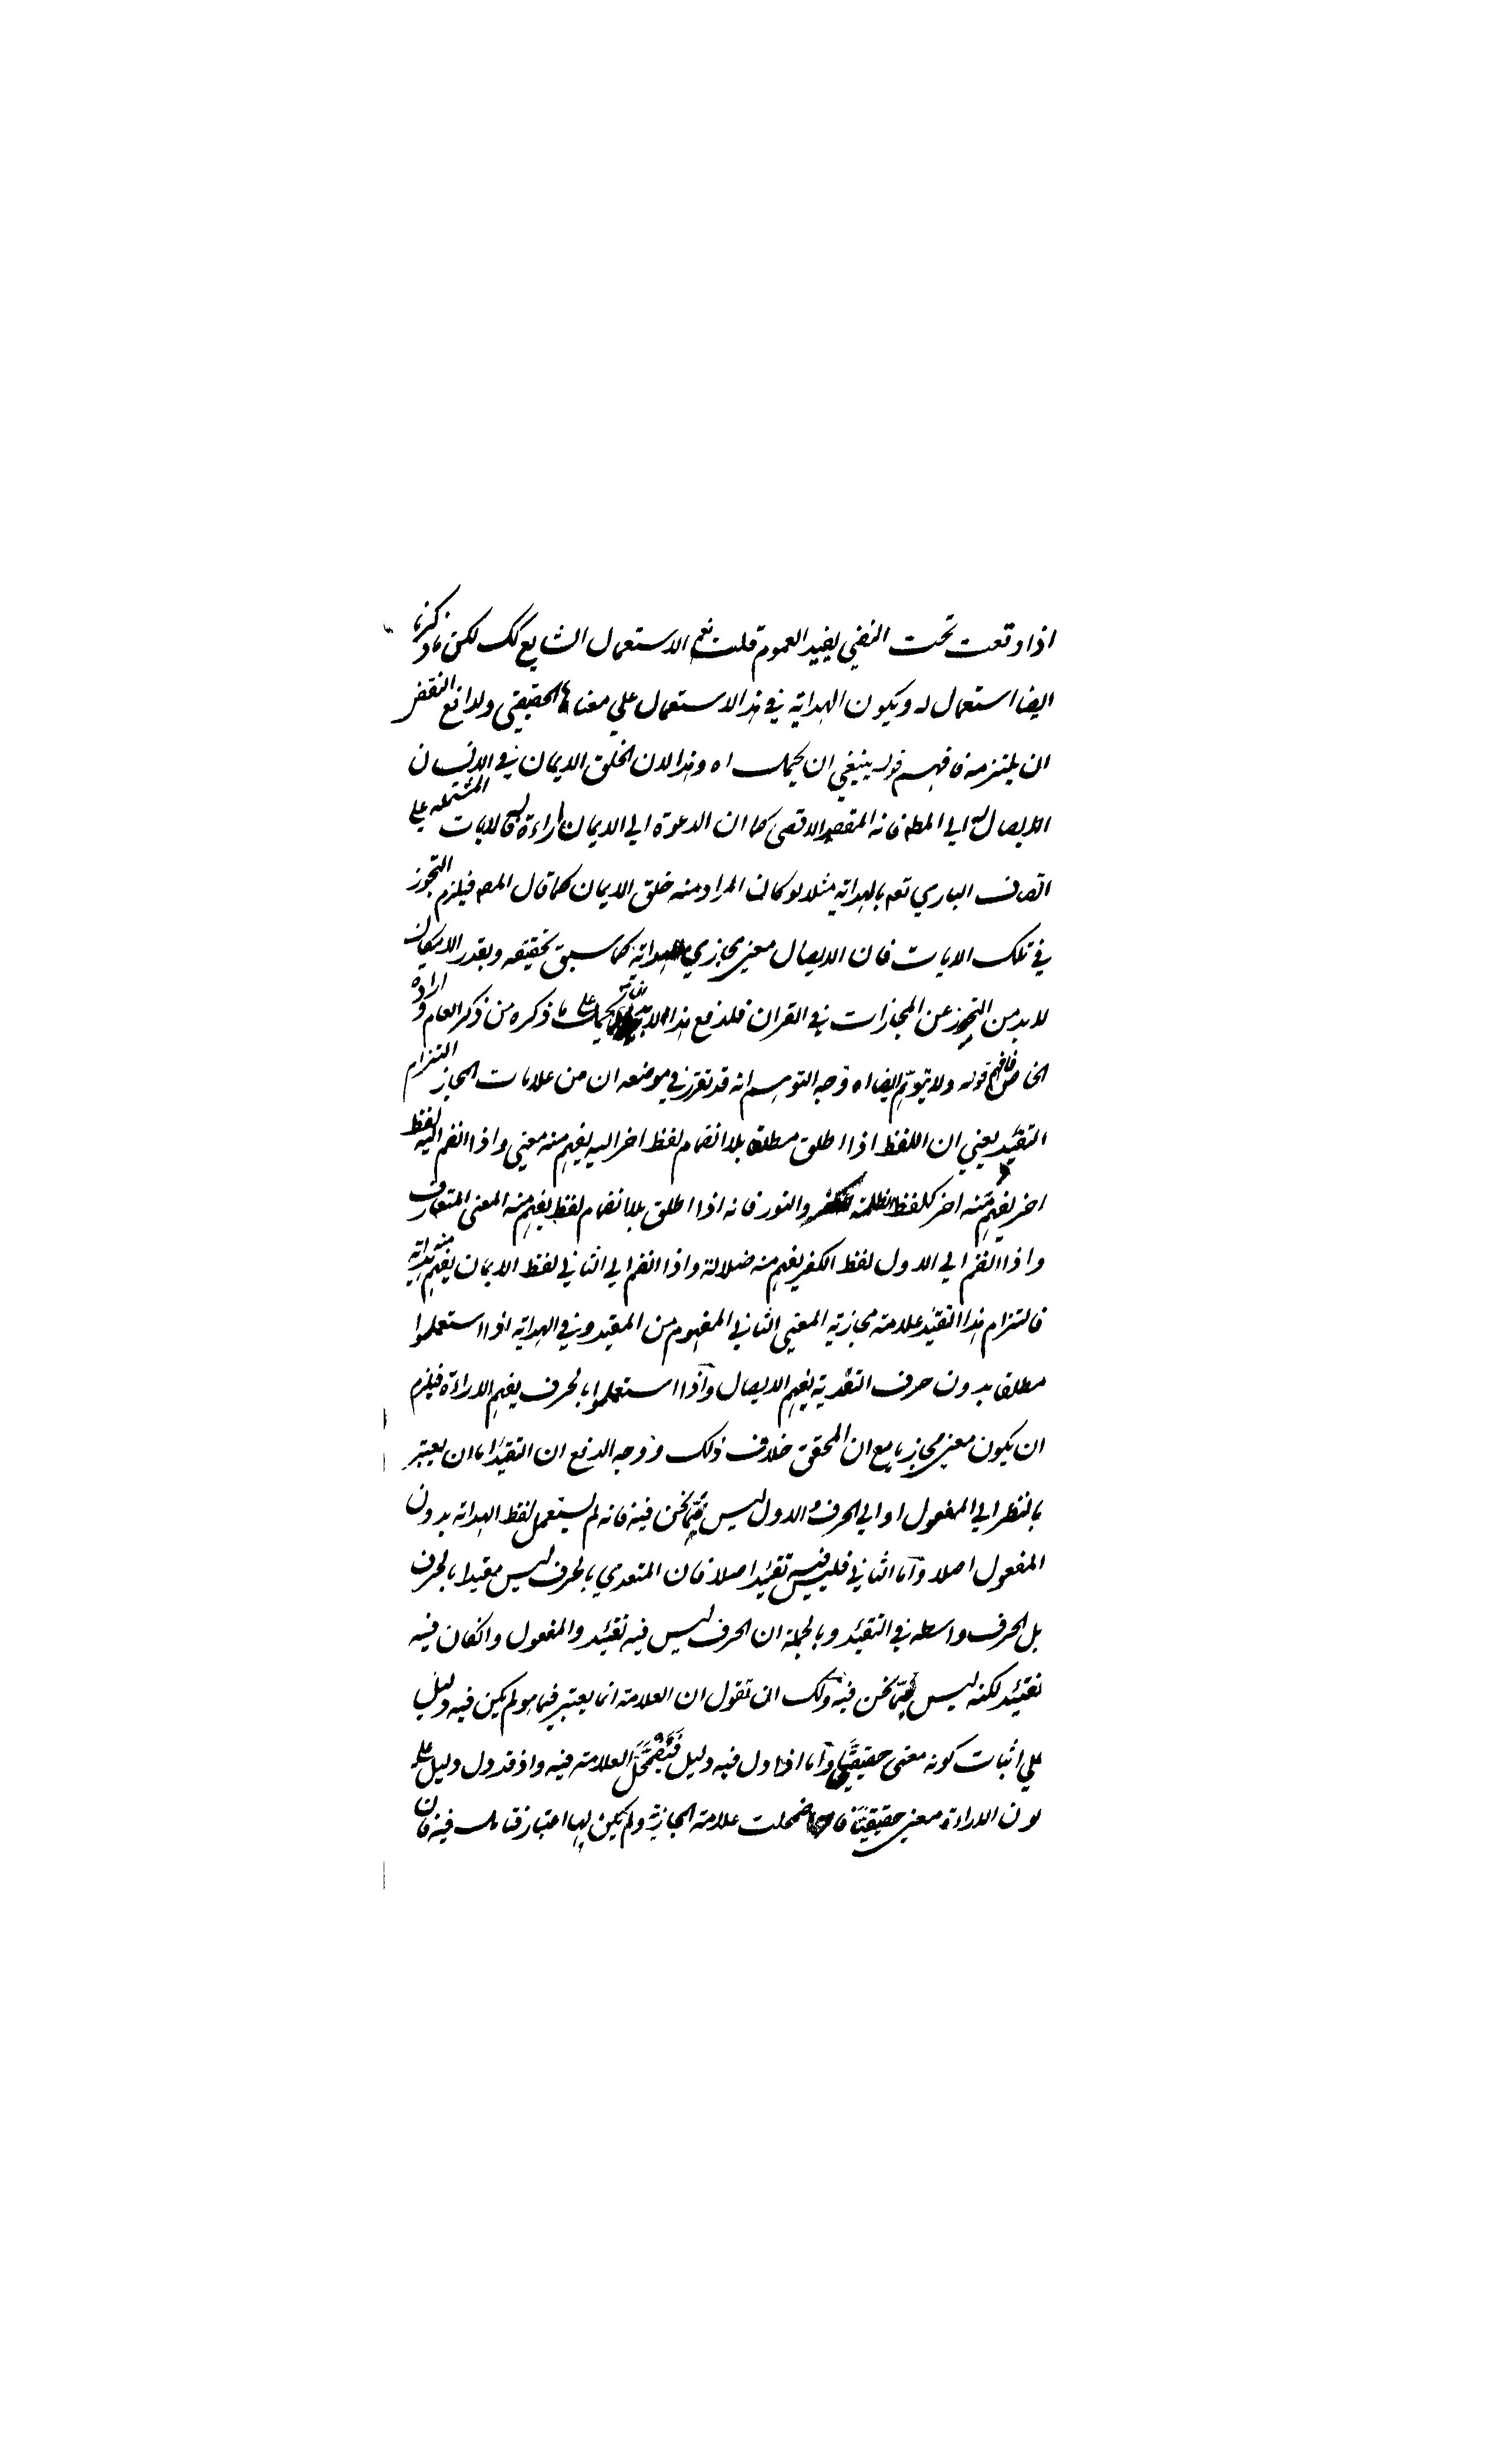 اذا وقعت تحت النفي يفيد العموم قلت نعم الاستعمال الشايع كك لكن ما ذكرنا
ايضا استعمال له ويكون الهداية في هذا الاستعمال علي معناها الحقيقي ولدافع النقض
ان يلتزمه فافهم قوله ينبغي ان يحمل اه وهذا لان خلق الايمان في الانسان
الايصال الي المط فانه المقصد الاقصى كما ان الدعوة الي الايمان اراءة له فالايات المشتملة علي
اتصاف الباري تعه بالهداية مثلا لو كان المراد منه خلق الايمان كما قال المص فيلزم التجوز
في تلك الايات فان الايصال معنى مجازي للهداية كما سبق تحقيقه وبقدر الامكان
لا بد من التحرز عن المجازات في القران فلدفع هذا يحمل علي ما ذكره من ذكر العام و ارادة
الخاص فافهم قوله ولا يتوهم ايضا اه وجه التوهم انه قد تقرر في موضعه ان من علامات المجاز التزام
التقييد يعني ان اللفظ اذا اطلق مطلقا بلا انضمام لفظ اخر اليه يفهم منه معني واذا انضم اليه لفظ
اخر يفهم منه اخر كلفظ الظلمة والنور فانه اذا اطلق بلا انضمام لفظ يفهم منه المعنى المتعارف
واذا انضم الي الاول لفظ الكفر يفهم منه ضلالة واذا انضم الي الثاني لفظ الايمان يفهم منه هداية
فالتزام هذا التقييد علامة مجازية المعني الثاني المفهوم من المقيد وفي الهداية اذا استعملوا
مطلقا بدون حرف التعدية يفهم الايصال واذا استعملوا بالحرف يفهم الاراءة فيلزم
ان يكون معنى مجازيا مع ان المحقق خلاف ذلك ووجه الدفع ان التقييد اما ان يعتبر
بالنظر الي المفعول او الي الحرف والاول ليس مما نحن فيه فانه لم يستعمل لفظ الهداية بدون
المفعول اصلا واما الثاني فليس فيه تقييد اصلا فان المتعدي بالحرف ليس مقيدا بالحرف
بل الحرف واسطه في التقييد وبالجملة ان الحرف ليس فيه تقييد والمفعول وانكان فيه
تقييد لكنه ليس مما نحن فيه ولك ان تقول ان العلامة انما يعتبر فيما لم يكن فيه دليل
علي اثبات كونه معنى حقيقيا واما اذا دل فيه دليل فتضمحل العلامة فيه واذ قد دل دليل علي
كون الاراءة معنى حقيقيا اضمحلت علامة المجازية ولم يكن لها اعتبار فتامل فيه فان